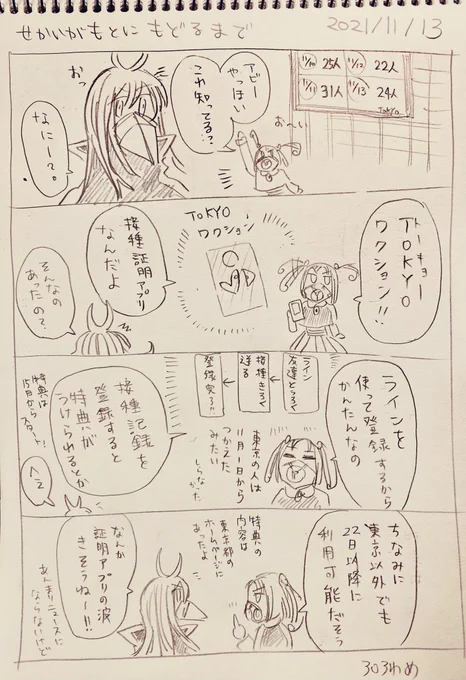 せかいがもとに もどるまで
2021/11/13
11/10 25人
11/12 22人
11/11 31人
11/13 24人
TOKYO
お〜い
アビー
やっほい
これ知ってる?
おっ
なにー?。
トーキョー
TOKYO
ワクション!!
TOKYO
ワクション
接種証明アプリ
なんだよ
そんなの
あったの?
ラインを
使って登録するから
かんたんなの
ライン
友達とうろく
接種きろく
送る
登録完了!!
東京の人は
11月1日から
つかえた
みたい
しらな
かった
接種記録を
登録すると
特典が
うけられるとか
特典は
15日からスタート!
へえ
ちなみに
東京以外でも
22日以降に
利用可能だそう
特典の
内容は
東京都の
ホームページに
あったよ
なんか
証明アプリの波
きそうねー!!
あんまりニュースに
ならないけど
303わめ